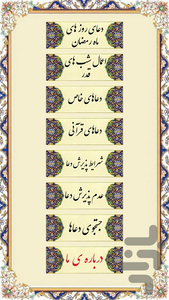 دعای روز های
ماه رمضان
اعمال شب های
قدر
دعاهای خاص
دعاهای قرآنی
شرایط پذیرش دعا
عدم پذیرش دعا
جستجوی دعاها
درباره ی ما
بازار